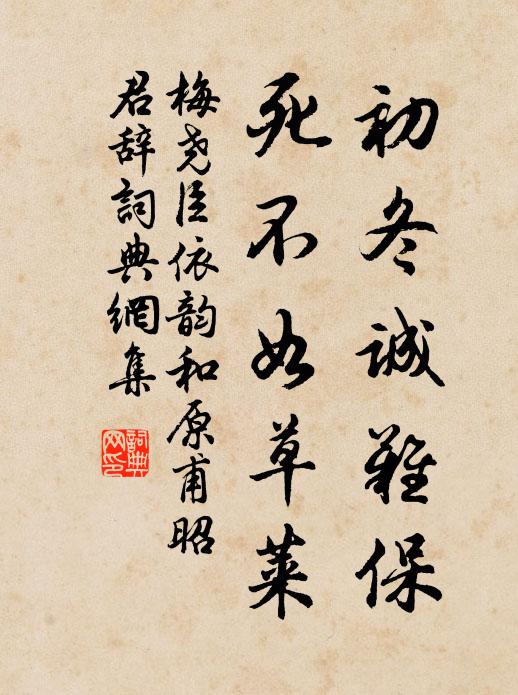 初冬誠難保
死不如草萊
梅尧臣依韵和原甫昭
君辞詞典網集
詞典
网印